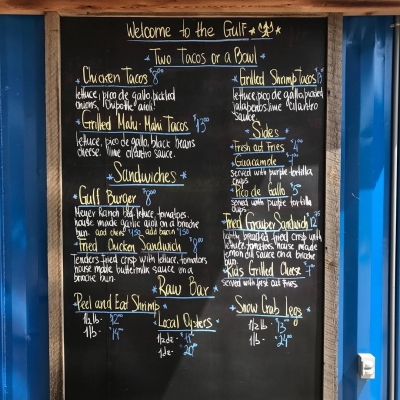 Welcome to the Gulf
Two Tacos or a Bowl
Chicken Tacos 8⁰⁰
lettuce, pico de gallo, pickled
onions, chipotle aioli
Grilled Mahi-Mahi Tacos $13⁰⁰
lettuce, pico de gallo, black beans
cheese, lime cilantro sauce.
Sandwiches
Gulf Burger $8⁰⁰
Meyer Ranch beef, lettuce, tomatoes,
house made garlic aioli on a brioche
bun. add cheese $1.50
Fried Chicken Sandwich
Tenders fried crisp with lettuce, tomatoes
house made buttermilk sauce on a
brioche bun.
Peel and Eat Shrimp
1/2 lb -
1 lb -
Raw Bar
Local Oysters
1/2 dz -
1 dz -
Grilled Shrimp Tacos
lettuce, pico de gallo, pickled
jalapenos, lime cilantro
sauce
Sides
Fresh cut Fries
Guacamole
served with purple tortilla
chips
Pico de Gallo
served with purple tortilla
chips
Fried Grouper Sandwich
lightly breaded, fried crisp with
lettuce, tomatoes, house made
lemon dill sauce on a brioche
bun.
Kids Grilled Cheese
served with fresh cut fries.
Snow Crab Legs
1/2 lb - $13⁰⁰
1 lb -